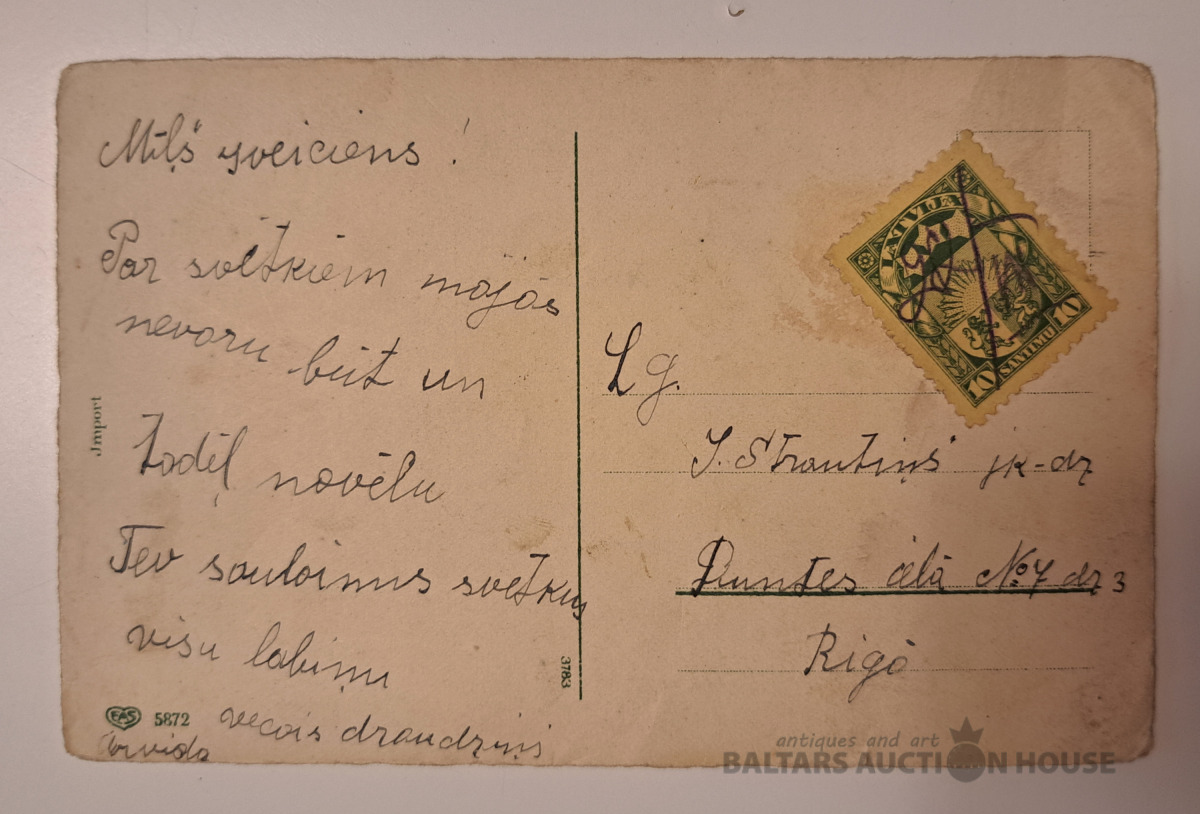 Mīļš sveiciens!
Par svētkiem mājās
nevaru būt un
todēļ novēlu
Tev saulainus svētkus
visu labiņu
vecais draudziņš
Arvids
Jmport
EAS 5872
3783
LATVIJA
10 10
SANTIMU
Lg.
J. Strautiņš jk-dz
Duntes ielā № 7 dz 3
Rīgā
antiques and art
BALTARS AUCTION HOUSE